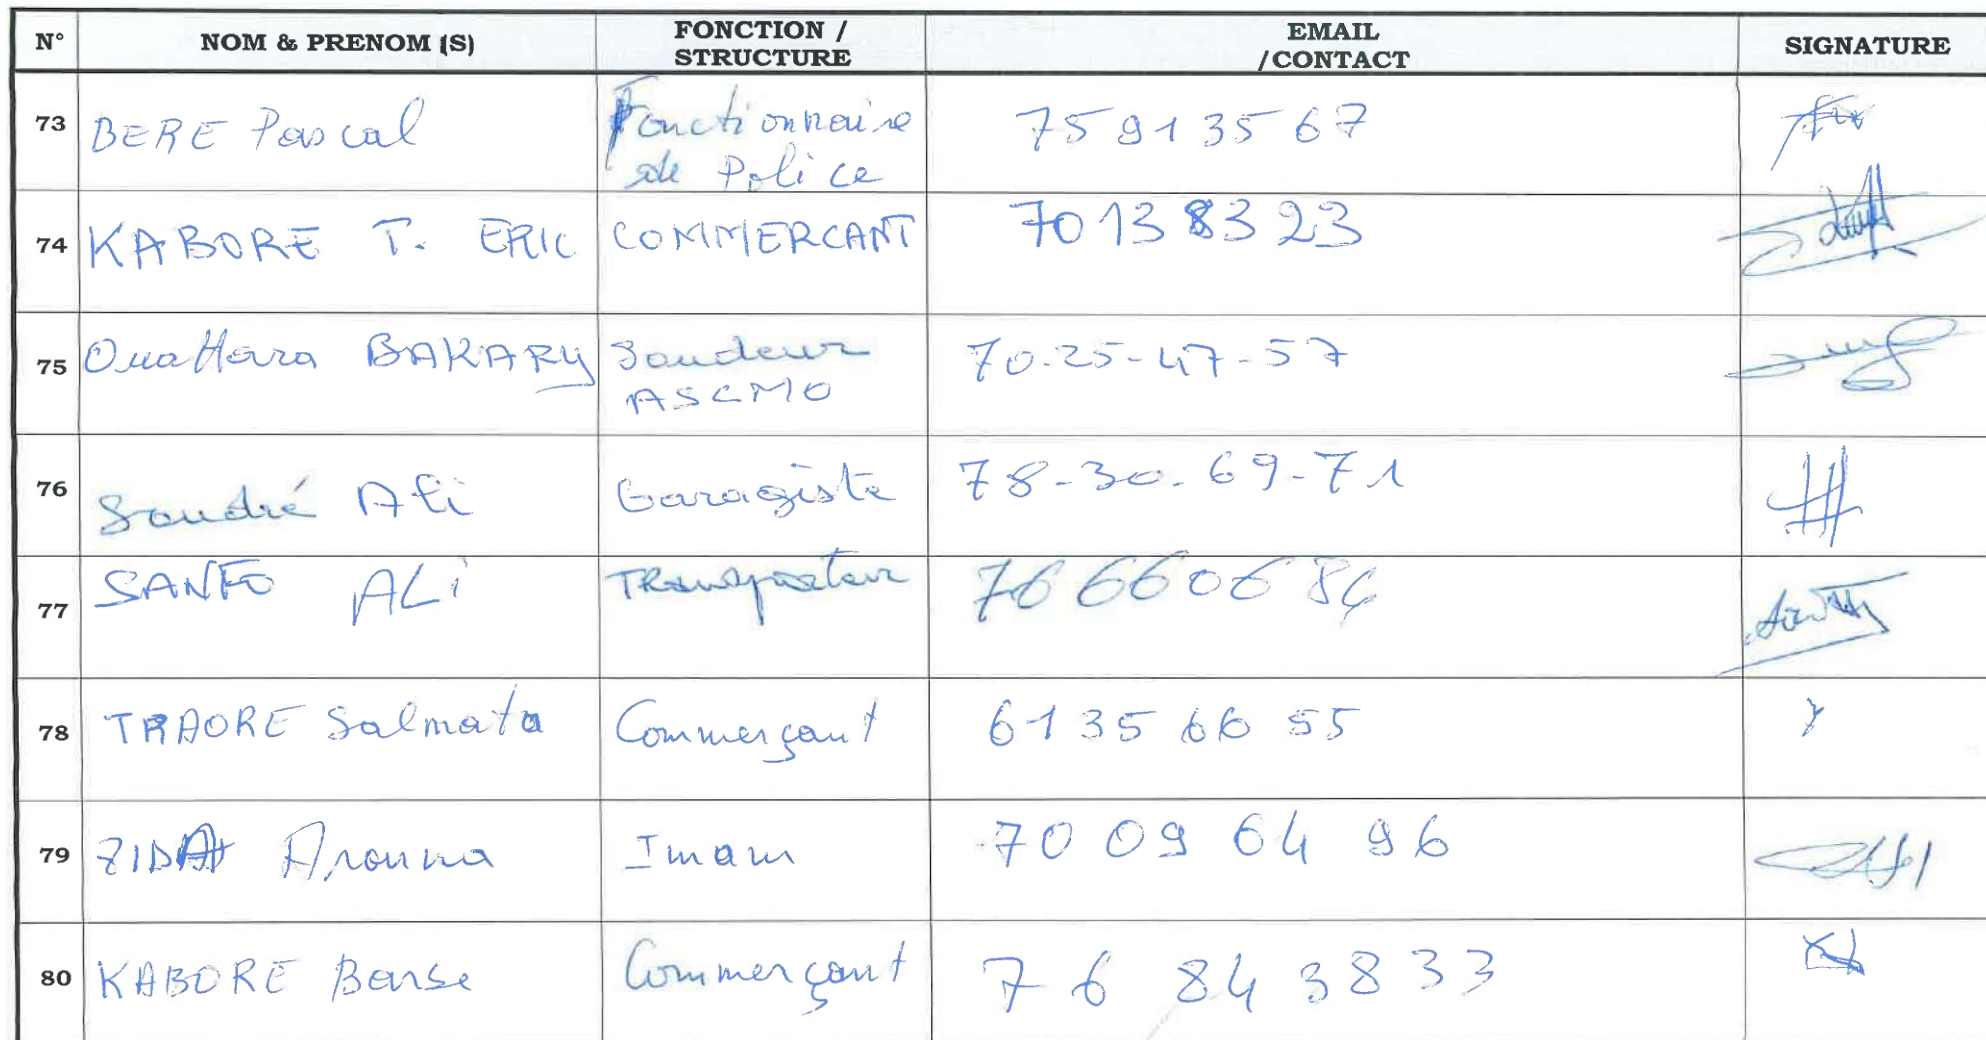 N° NOM & PRENOM (S) FONCTION / STRUCTURE EMAIL /CONTACT SIGNATURE
73 BERE Pascal Fonctionnaire de Police 75913567
74 KABORE T. ERIC COMMERCANT 70138323
75 Ouattara BAKARY Soudeur ASCMO 70-25-47-57
76 Soudré Ali Garagiste 78-30-69-71
77 SANFO ALi TRansporteur 766606
78 TRAORE Salmata Commerçant 61356655
79 ZIDA Arouna Imam 70 09 64 96
80 KABORE Commerçant 76 84 38 33